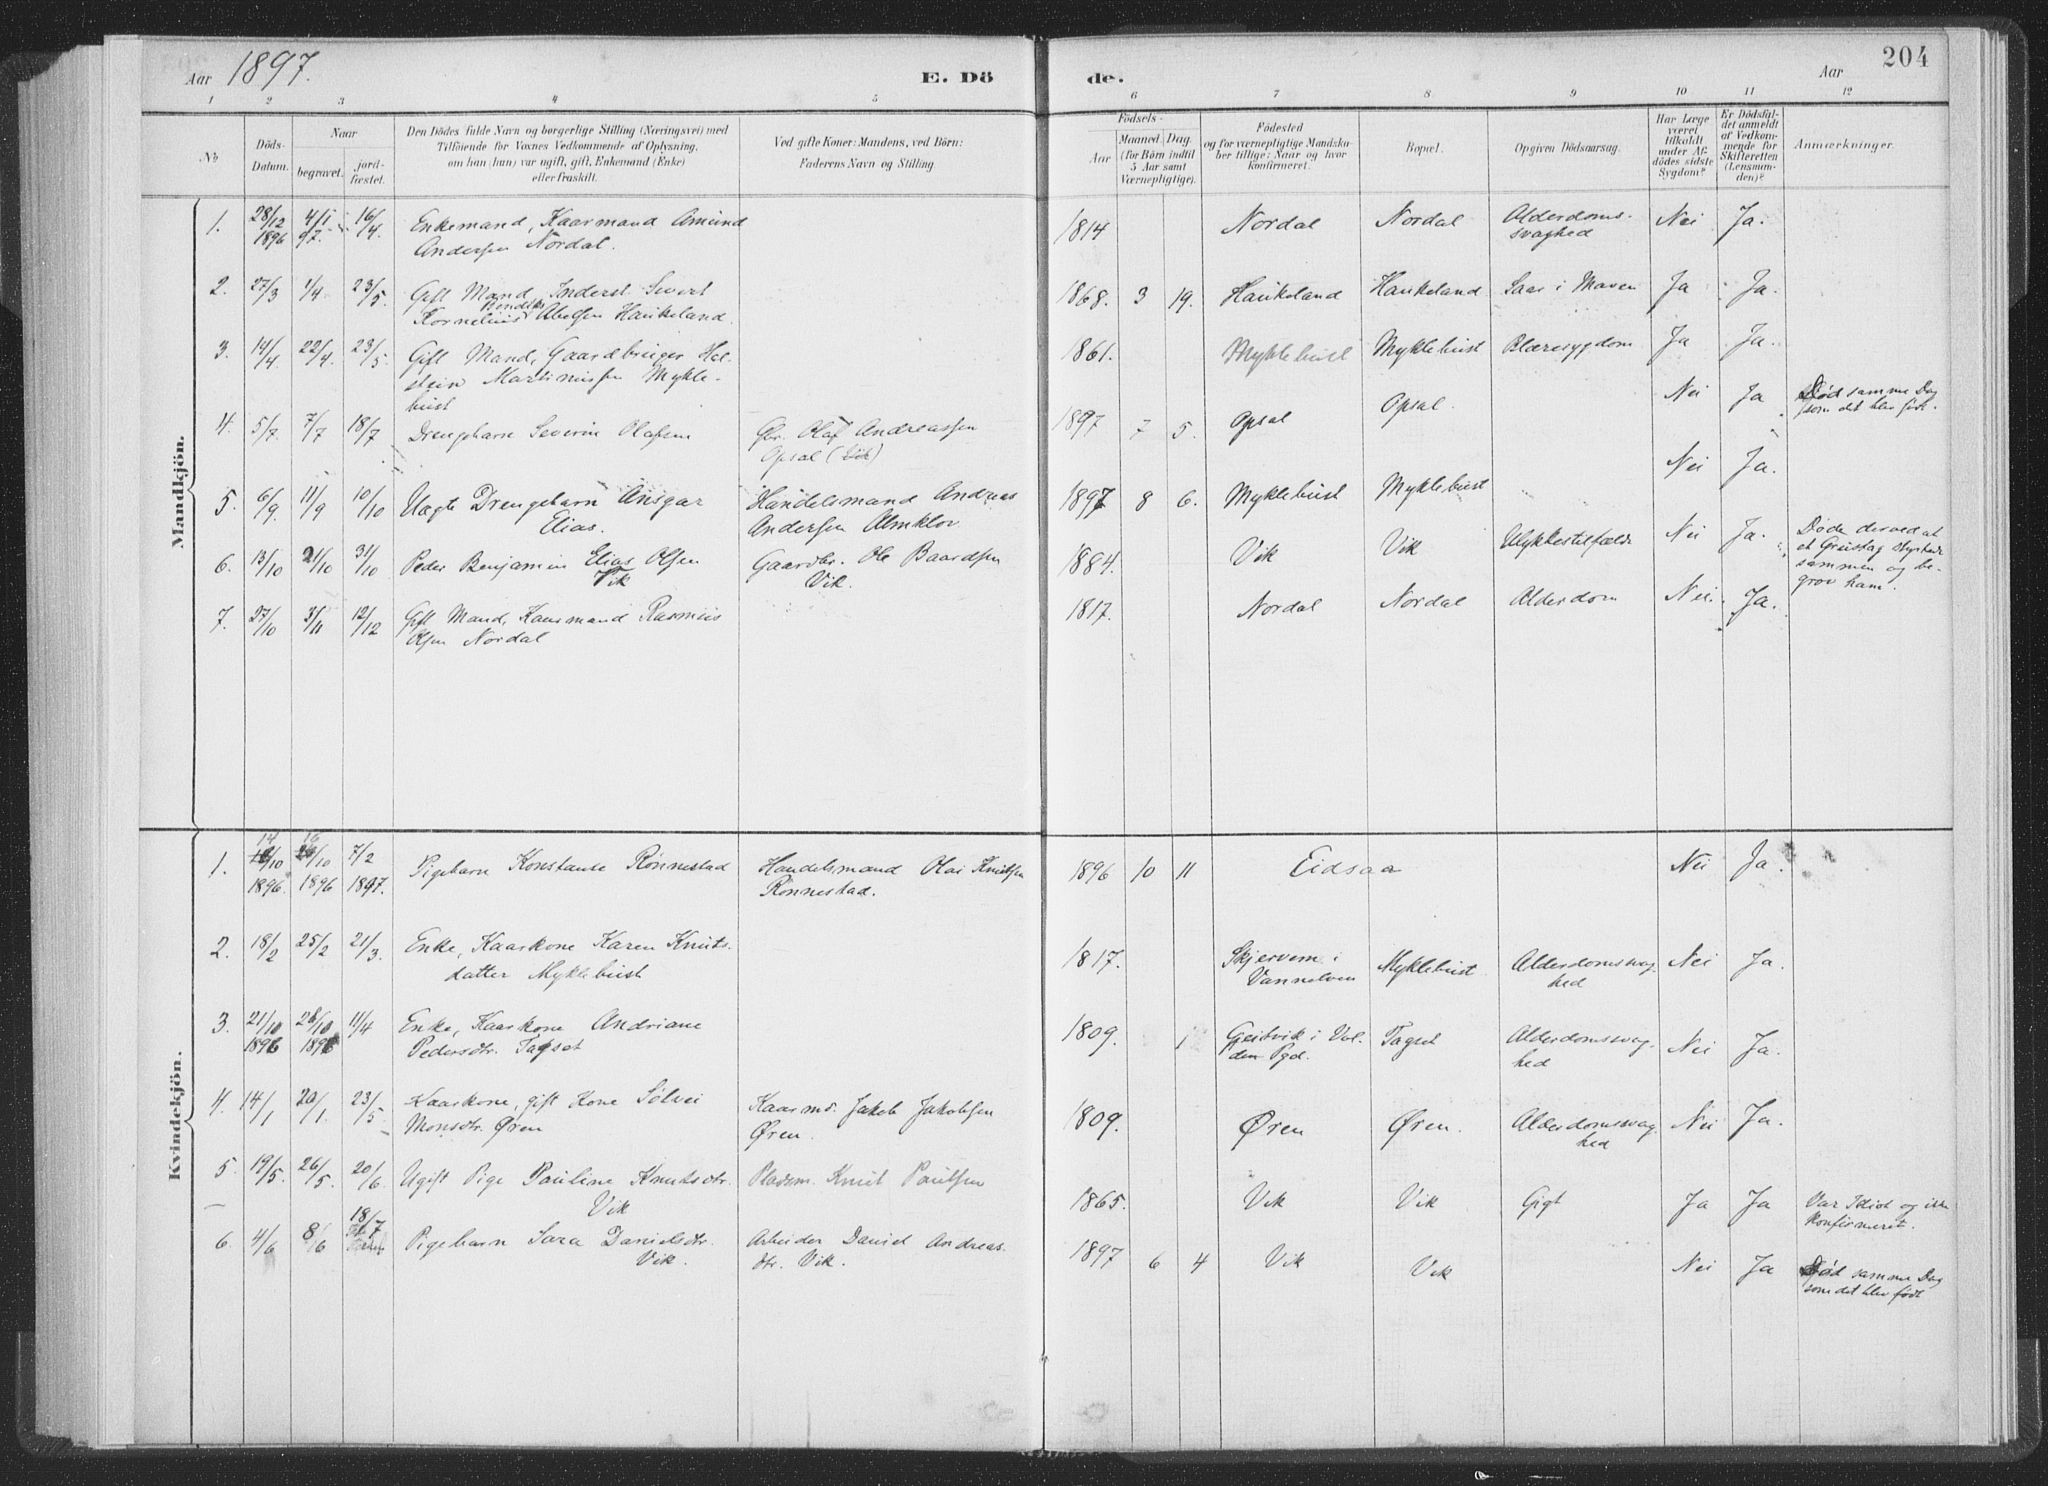 Aar 1897. E. Dö de. Aar 204
1 2 3 4 5 6 7 8 9 10 11 12
No
Döds-
Datum.
Naar
begravet.
jord-
fæstet.
Den Dödes fulde Navn og borgerlige Stilling (Næringsvei) med
Tilföiende for Voxnes Vedkommende af Oplysning,
om han (hun) var ugift, gift, Enkemand (Enke)
eller fraskilt.
Ved gifte Koner: Mandens, ved Börn:
Faderens Navn og Stilling
Födsels-
Aar
Maaned
Dag
(for Börn indtil
5 Aar samt
Værnepligtige).
Födested
og for værnepligtige Mandska-
ber tillige: Naar og hvor
konfirmeret.
Bopæl.
Opgiven Dödsaarsag.
Har Læge
været
tilkaldt
under Af-
dödes sidste
Sygdom?
Er Dödsfal-
det anmeldt
af Vedkom-
mende for
Skifteretten
(Lensman-
den)?
Anmærkninger.
Mandkjön.
1. 28/12 4/1 16/4 Enkemand, Kaarmand Amund 1814 Nordal Nordal Alderdoms- Nei Ja.
1896 97. Andersen Nordal. svaghed
2. 27/3 1/4 23/5. Gift Mand, Inderst Sivert 1868. 3 19. Haukeland Haukeland Saar i Maven Ja Ja.
Kornelius Abelsen Haukeland.
3. 14/4 22/4. 23/5. Gift Mand, Gaardbruger Hol- 1861. Myklebust Myklebust Blæresygdom Ja Ja.
stein Martinussen Mykle-
bust
4. 5/7. 7/7 18/7 Drengebarn Severin Olafsen Gbr. Olaf Andreassen 1897 7 5. Opsal Opsal. Nei Ja Død samme Dag
Opsal (Vik) som det blev født.
5. 6/9. 11/9 10/10 Uægte Drengebarn Ansgar Handelsmand Andreas 1897 8 6. Myklebust Myklebust Nei Ja.
Elias. Andersen Almklov
6. 13/10 21/10 31/10 Peder Benjamin Elias Olsen Gaardbr. Ole Baardsen 1884. Vik Vik Ulykkestilfælde Nei Ja. Døde derved at
Vik Vik. et Grustag styrtede
sammen og be-
grov ham.
7. 27/10 3/11 12/12 Gift Mand, Kaarmand Rasmus 1817. Nordal Nordal Alderdom Nei. Ja.
Olsen Nordal
Kvindekjön.
1. 14/10 16/10 7/2 Pigebarn Konstanse Rønnestad Handelsmand Olai Knutsen 1896 10 11 Eidsaa Nei Ja.
1896. 1896 1897. Rønnestad.
2. 18/2 25/2 21/3. Enke, Kaarkone Karen Knuts- 1817. Skjervem i Myklebust Alderdomssvag- Nei Ja.
datter Myklebust Vannelven hed
3. 21/10 28/10 11/4 Enke, Kaarkone Andriane 1809. Geitvik i Vol- Tagset Alderdomssvag- Nei Ja.
1896 1896 Pedersdtr. Tagset den Pgd. hed
4. 14/1 20/1. 23/5 Kaarkone, gift Kone Sølvei Kaarmd. Jakob Jakobsen 1809. Øren Øren. Alderdomssvag- Nei Ja.
Monsdtr. Øren Øren. hed
5. 19/5. 26/5. 20/6 Ugift Pige Pauline Knutsdtr. Pladsm. Knut Paulsen 1865. Vik Vik Gigt Ja Ja Var Idiot og ikke
Vik konfirmeret.
6. 4/6 8/6 18/7 Pigebarn Sara Danielsdtr. Arbeider Daniel Andreas- 1897 6 4 Vik Vik Nei Ja Død samme Dag
Vik. Vik. som det blev født